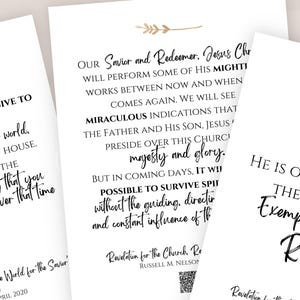 IVE TO
world,
HOUSE.
THE
that you
ver that time
e World for the Savior
PRIL 2020
OUR Savior and Redeemer, Jesus Chr
WILL PERFORM SOME OF HIS MIGHTI
WORKS BETWEEN NOW AND WHEN
COMES AGAIN. WE WILL SEE
MIRACULOUS INDICATIONS THAT
THE FATHER AND HIS SON, JESUS
PRESIDE OVER THIS CHURCH
majesty and glory.
BUT IN COMING DAYS, IT WI
POSSIBLE TO SURVIVE SPIR
without the guiding, directin
and constant influence of th
Revelation for the Church, Re
RUSSELL M. NELSO
HE IS O
THE
Exemp
R
Revelation